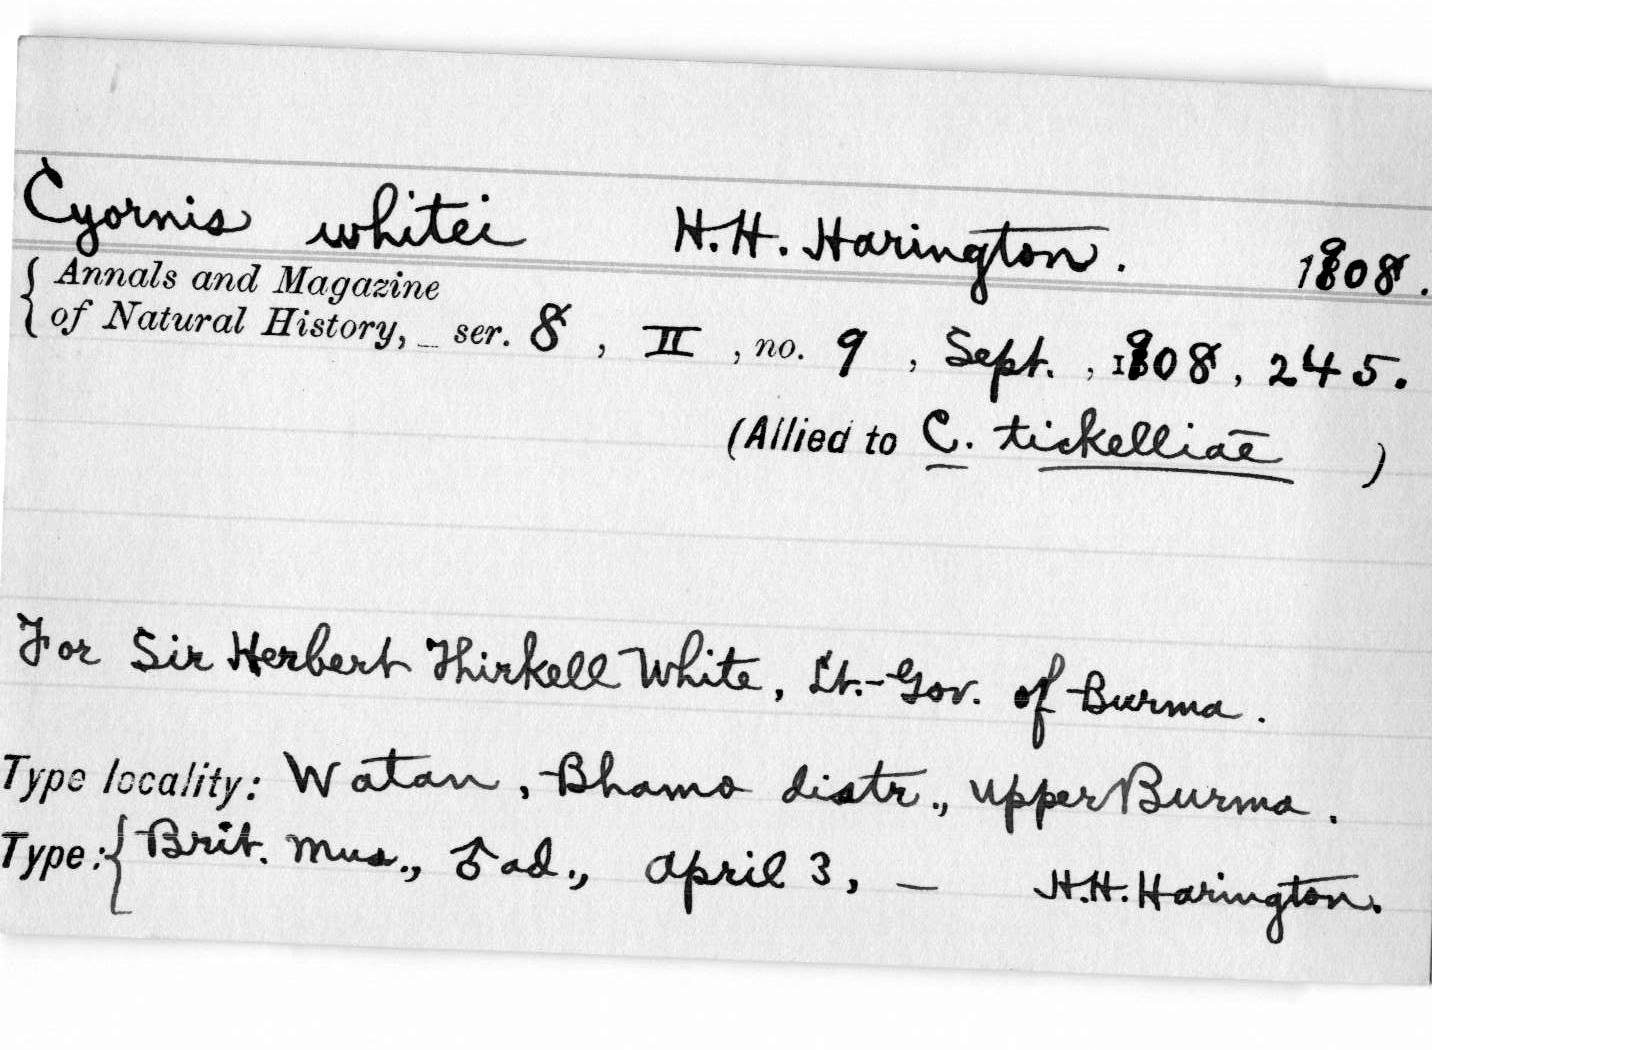 Cyornis whitei H.H. Harington. 1908.
{ Annals and Magazine
of Natural History, _ ser. 8, II, no. 9, Sept., 1908, 245.
(Allied to C. tickelliae )
For Sir Herbert Thirkell White, Lt.-Gov. of Burma.
Type locality: Watan, Bhamo distr., upper Burma.
Type: { Brit. Mus., ♂ ad., April 3, — H.H. Harington.